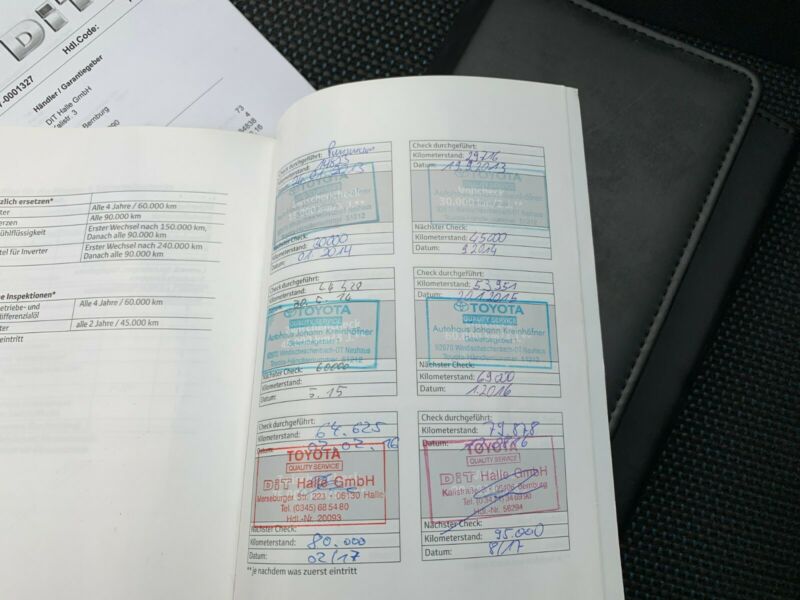 DiT
Hdl.Code:
7-0001327
Händler / Garantiegeber
DiT Halle GmbH
Bernburg
zlich ersetzen*
Alle 4 Jahre / 60.000 km
Alle 90.000 km
ühlflüssigkeit
Erster Wechsel nach 150.000 km,
Danach alle 90.000 km
tel für Inverter
Erster Wechsel nach 240.000 km
Danach alle 90.000 km
e Inspektionen*
Alle 4 Jahre / 60.000 km
etriebe- und
differenzialöl
alle 2 Jahre / 45.000 km
eintritt
Check durchgeführt:
Kilometerstand:
Datum:
TOYOTA
Nächster Check:
Kilometerstand: 30000
Datum: 01.2014
Check durchgeführt:
Kilometerstand: 29716
Datum: 19.9.2013
TOYOTA
30.000 km/2 J.**
Nächster Check:
Kilometerstand: 45000
Datum: 9.2014
Check durchgeführt:
Kilometerstand:
TOYOTA
QUALITY SERVICE
Autohaus Johann Kreinhöfner
92670 Windischeschenbach-OT Neuhaus
Nächster Check: 60000
Kilometerstand:
Datum: 5.15
Check durchgeführt:
Kilometerstand: 53951
Datum: 20.1.2015
TOYOTA
QUALITY SERVICE
Autohaus Johann Kreinhöfner
92670 Windischeschenbach-OT Neuhaus
Nächster Check:
Kilometerstand: 69000
Datum: 1.2016
Check durchgeführt:
Kilometerstand: 64.625
Datum: 02.02.16
TOYOTA
QUALITY SERVICE
DiT Halle GmbH
Merseburger Str. 223 · 06130 Halle
Tel. (0345) 68 54 80
Hdl.-Nr. 20093
Nächster Check:
Kilometerstand: 80.000
Datum: 02/17
Check durchgeführt:
Kilometerstand: 79.878
Datum:
TOYOTA
QUALITY SERVICE
DiT Halle GmbH
Bernburg
Hdl.-Nr. 56294
Nächster Check:
Kilometerstand: 95.000
Datum: 8/17
**je nachdem was zuerst eintritt